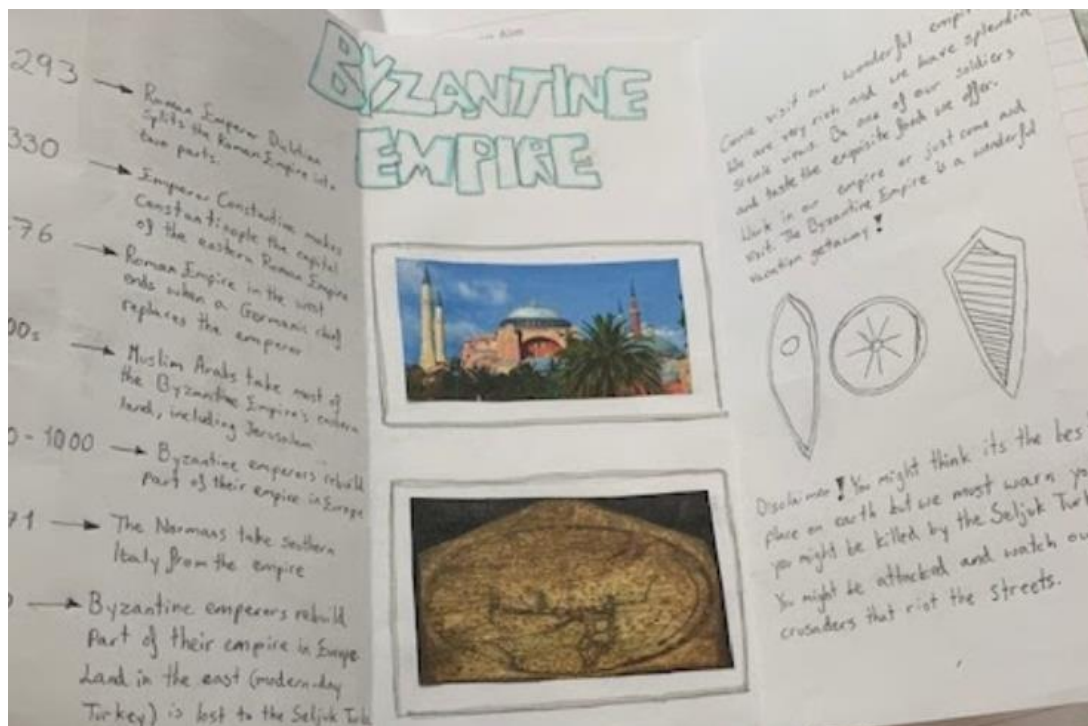 293 → Roman Emperor Dicletian
splits the Roman Empire into
two parts.
330 → Emperor Constantine makes
Constantinople the capital
of the eastern Roman Empire
76 → Roman Empire in the west
ends when a Germanic chief
replaces the emperor
00s → Muslim Arabs take most of
the Byzantine Empire's eastern
land, including Jerusalem
0-1000 → Byzantine emperors rebuild
part of their empire in Europe
71 → The Normans take southern
Italy from the empire
→ Byzantine emperors rebuild
part of their empire in Europe
Land in the east (modern-day
Turkey) is lost to the Seljuk
BYZANTINE
EMPIRE
Come visit our wonderful
We are very rich and we have splendid
scenic views. Be one of our soldiers
and taste the exquisite foods we offer.
Work in our empire or just come and
visit. The Byzantine Empire is a wonderful
vacation getaway!
Disclaimer! You might think its the bes
place on earth but we must warn
you might be killed by the Seljuk
You might be attacked and watch
crusaders that riot the streets.